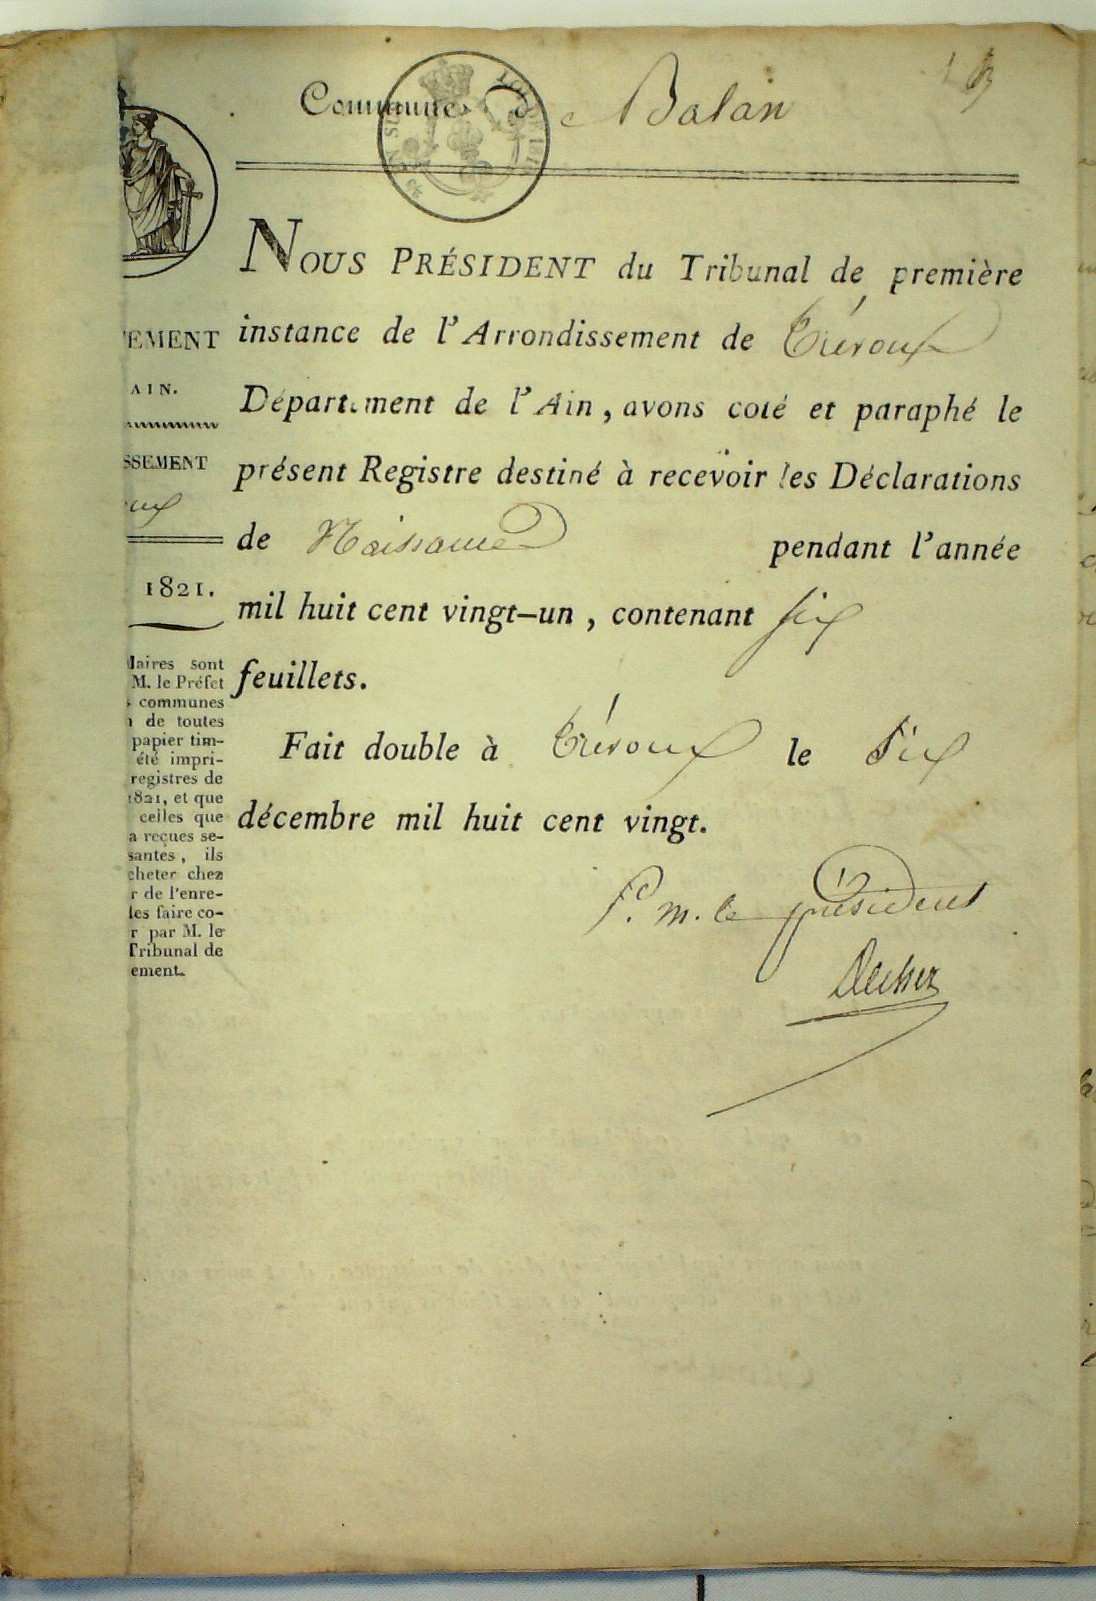 Commune de Balan
NOUS PRÉSIDENT du Tribunal de première
instance de l'Arrondissement de Trévoux
Département de l'Ain, avons coté et paraphé le
présent Registre destiné à recevoir les Déclarations
de Naissance pendant l'année
mil huit cent vingt-un, contenant six
feuillets.
Fait double à Trévoux le Six
décembre mil huit cent vingt.
P. m. le président
TEMENT
AIN.
SSEMENT
oux
1821.
laires sont
M. le Préfet
s communes
n de toutes
papier tim-
été impri-
registres de
1821, et que
celles que
a reçues se-
santes, ils
cheter chez
r de l'enre-
les faire co-
r par M. le
Tribunal de
ement.